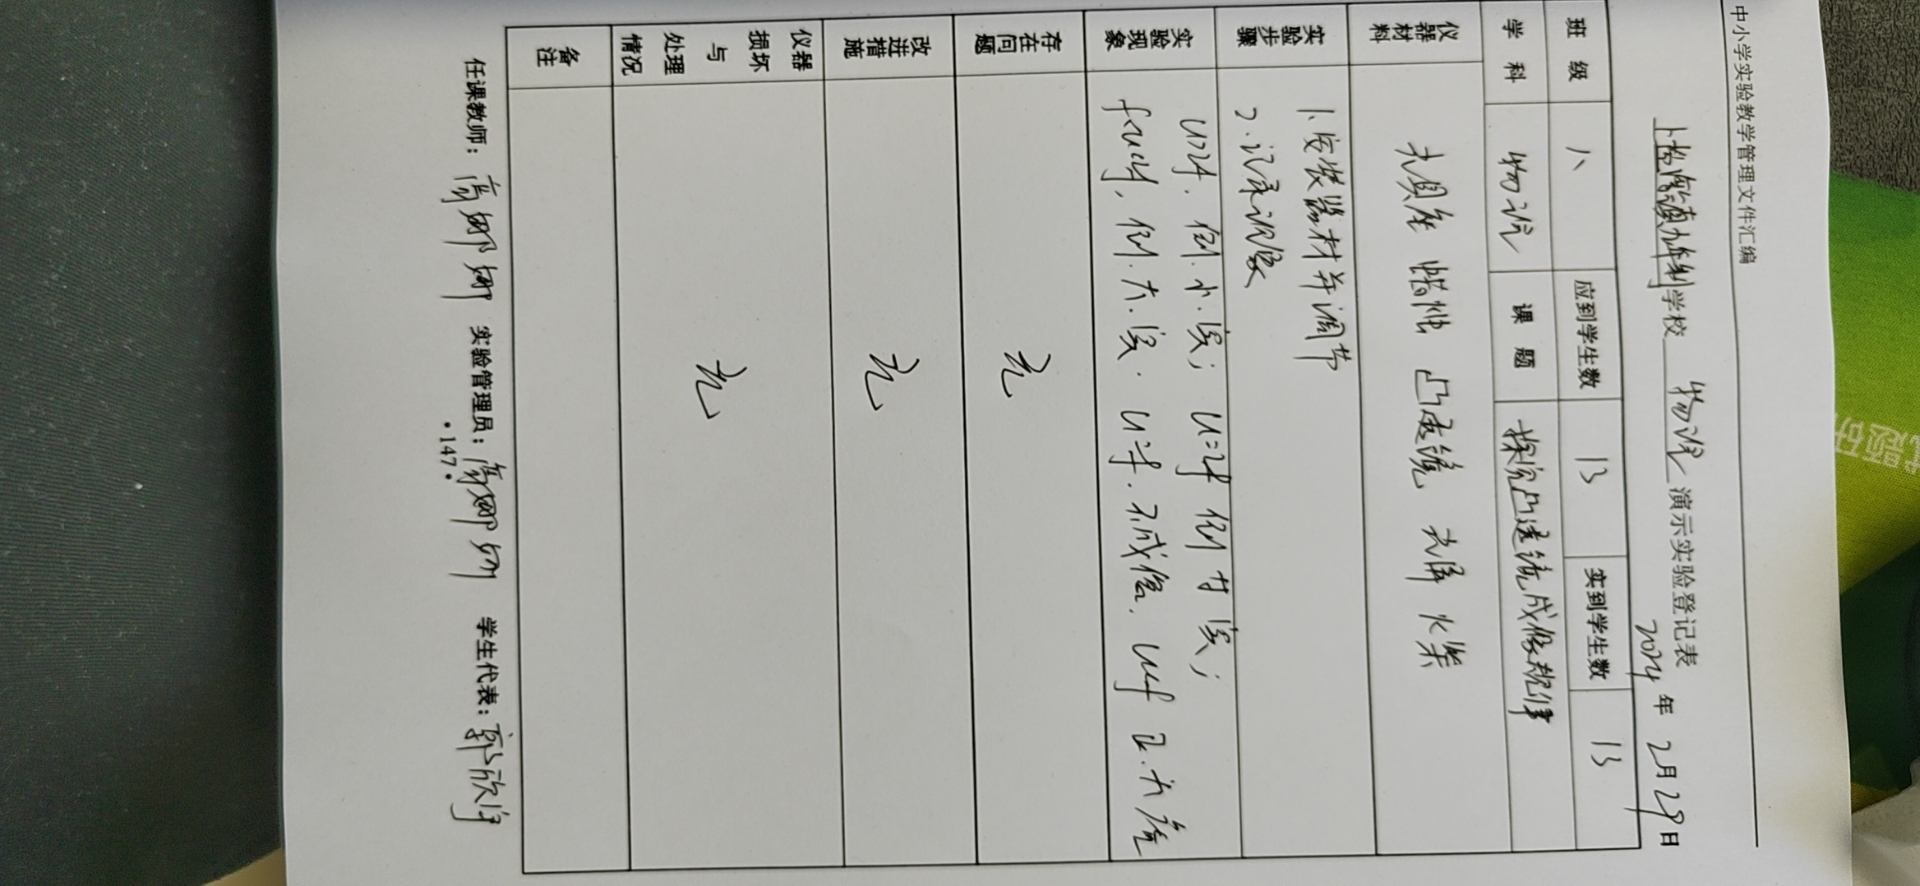 中小学实验教学管理文件汇编
学校 物理 演示实验登记表
2024 年 2月29日
班 级 八 应到学生数 13 实到学生数 13
学 科 物理 课 题 探究凸透镜成像规律
仪器材料 光具座 蜡烛 凸透镜 光屏 火柴
实验步骤 1.安装器材并调节
2.记录现象
实验现象 u>2f. 倒.小.实; u=2f 倒 等 实;
f<u<2f, 倒.大.实. u=f.不成像. u<f 正.大.虚
存在问题 无
改进措施 无
仪器损坏与处理情况 无
备注
任课教师: 高娜娜 实验管理员: 高娜娜 学生代表: 郭欣
·147·
试题研